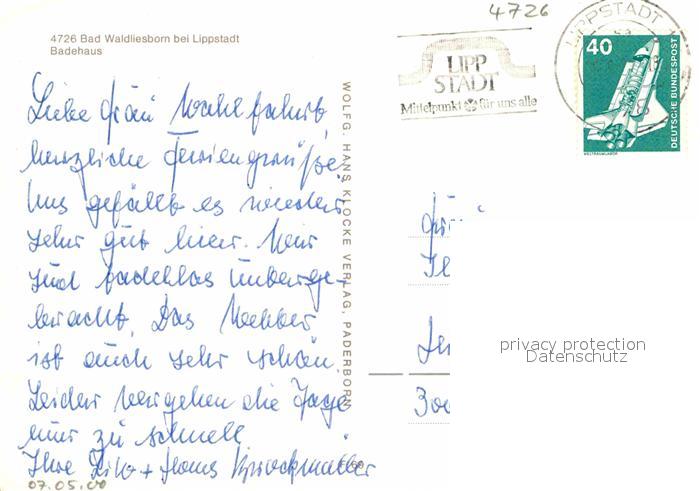 4726
4726 Bad Waldliesborn bei Lippstadt
Badehaus
LIPPSTADT
LIPP
STADT
Mittelpunkt für uns alle
40
DEUTSCHE BUNDESPOST
WELTRAUMLABOR
Liebe Frau Wohlfahrt,
herzliche Feriengrüße.
Uns gefällt es wieder
sehr gut hier. Wir
sind tadellos unterge-
bracht. Das Wetter
ist auch sehr schön.
Leider vergehen die Tage
nur zu schnell
Ihre + Hans
07.05.00
WOLFG. HANS KLOCKE VERLAG, PADERBORN
privacy protection
Datenschutz